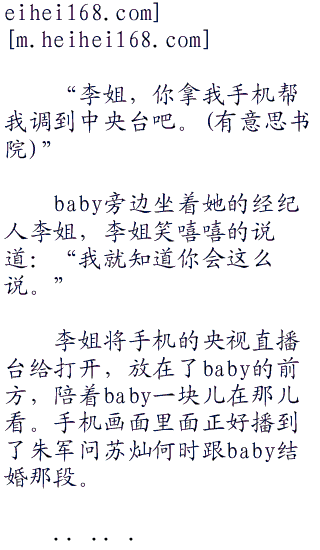 eihei168.com]
[m.heihei168.com]
“李姐，你拿我手机帮
我调到中央台吧。(有意思书
院)”
baby旁边坐着她的经纪
人李姐，李姐笑嘻嘻的说
道：“我就知道你会这么
说。”
李姐将手机的央视直播
台给打开，放在了baby的前
方，陪着baby一块儿在那儿
看。手机画面里面正好播到
了朱军问苏灿何时跟baby结
婚那段。
．．．．．